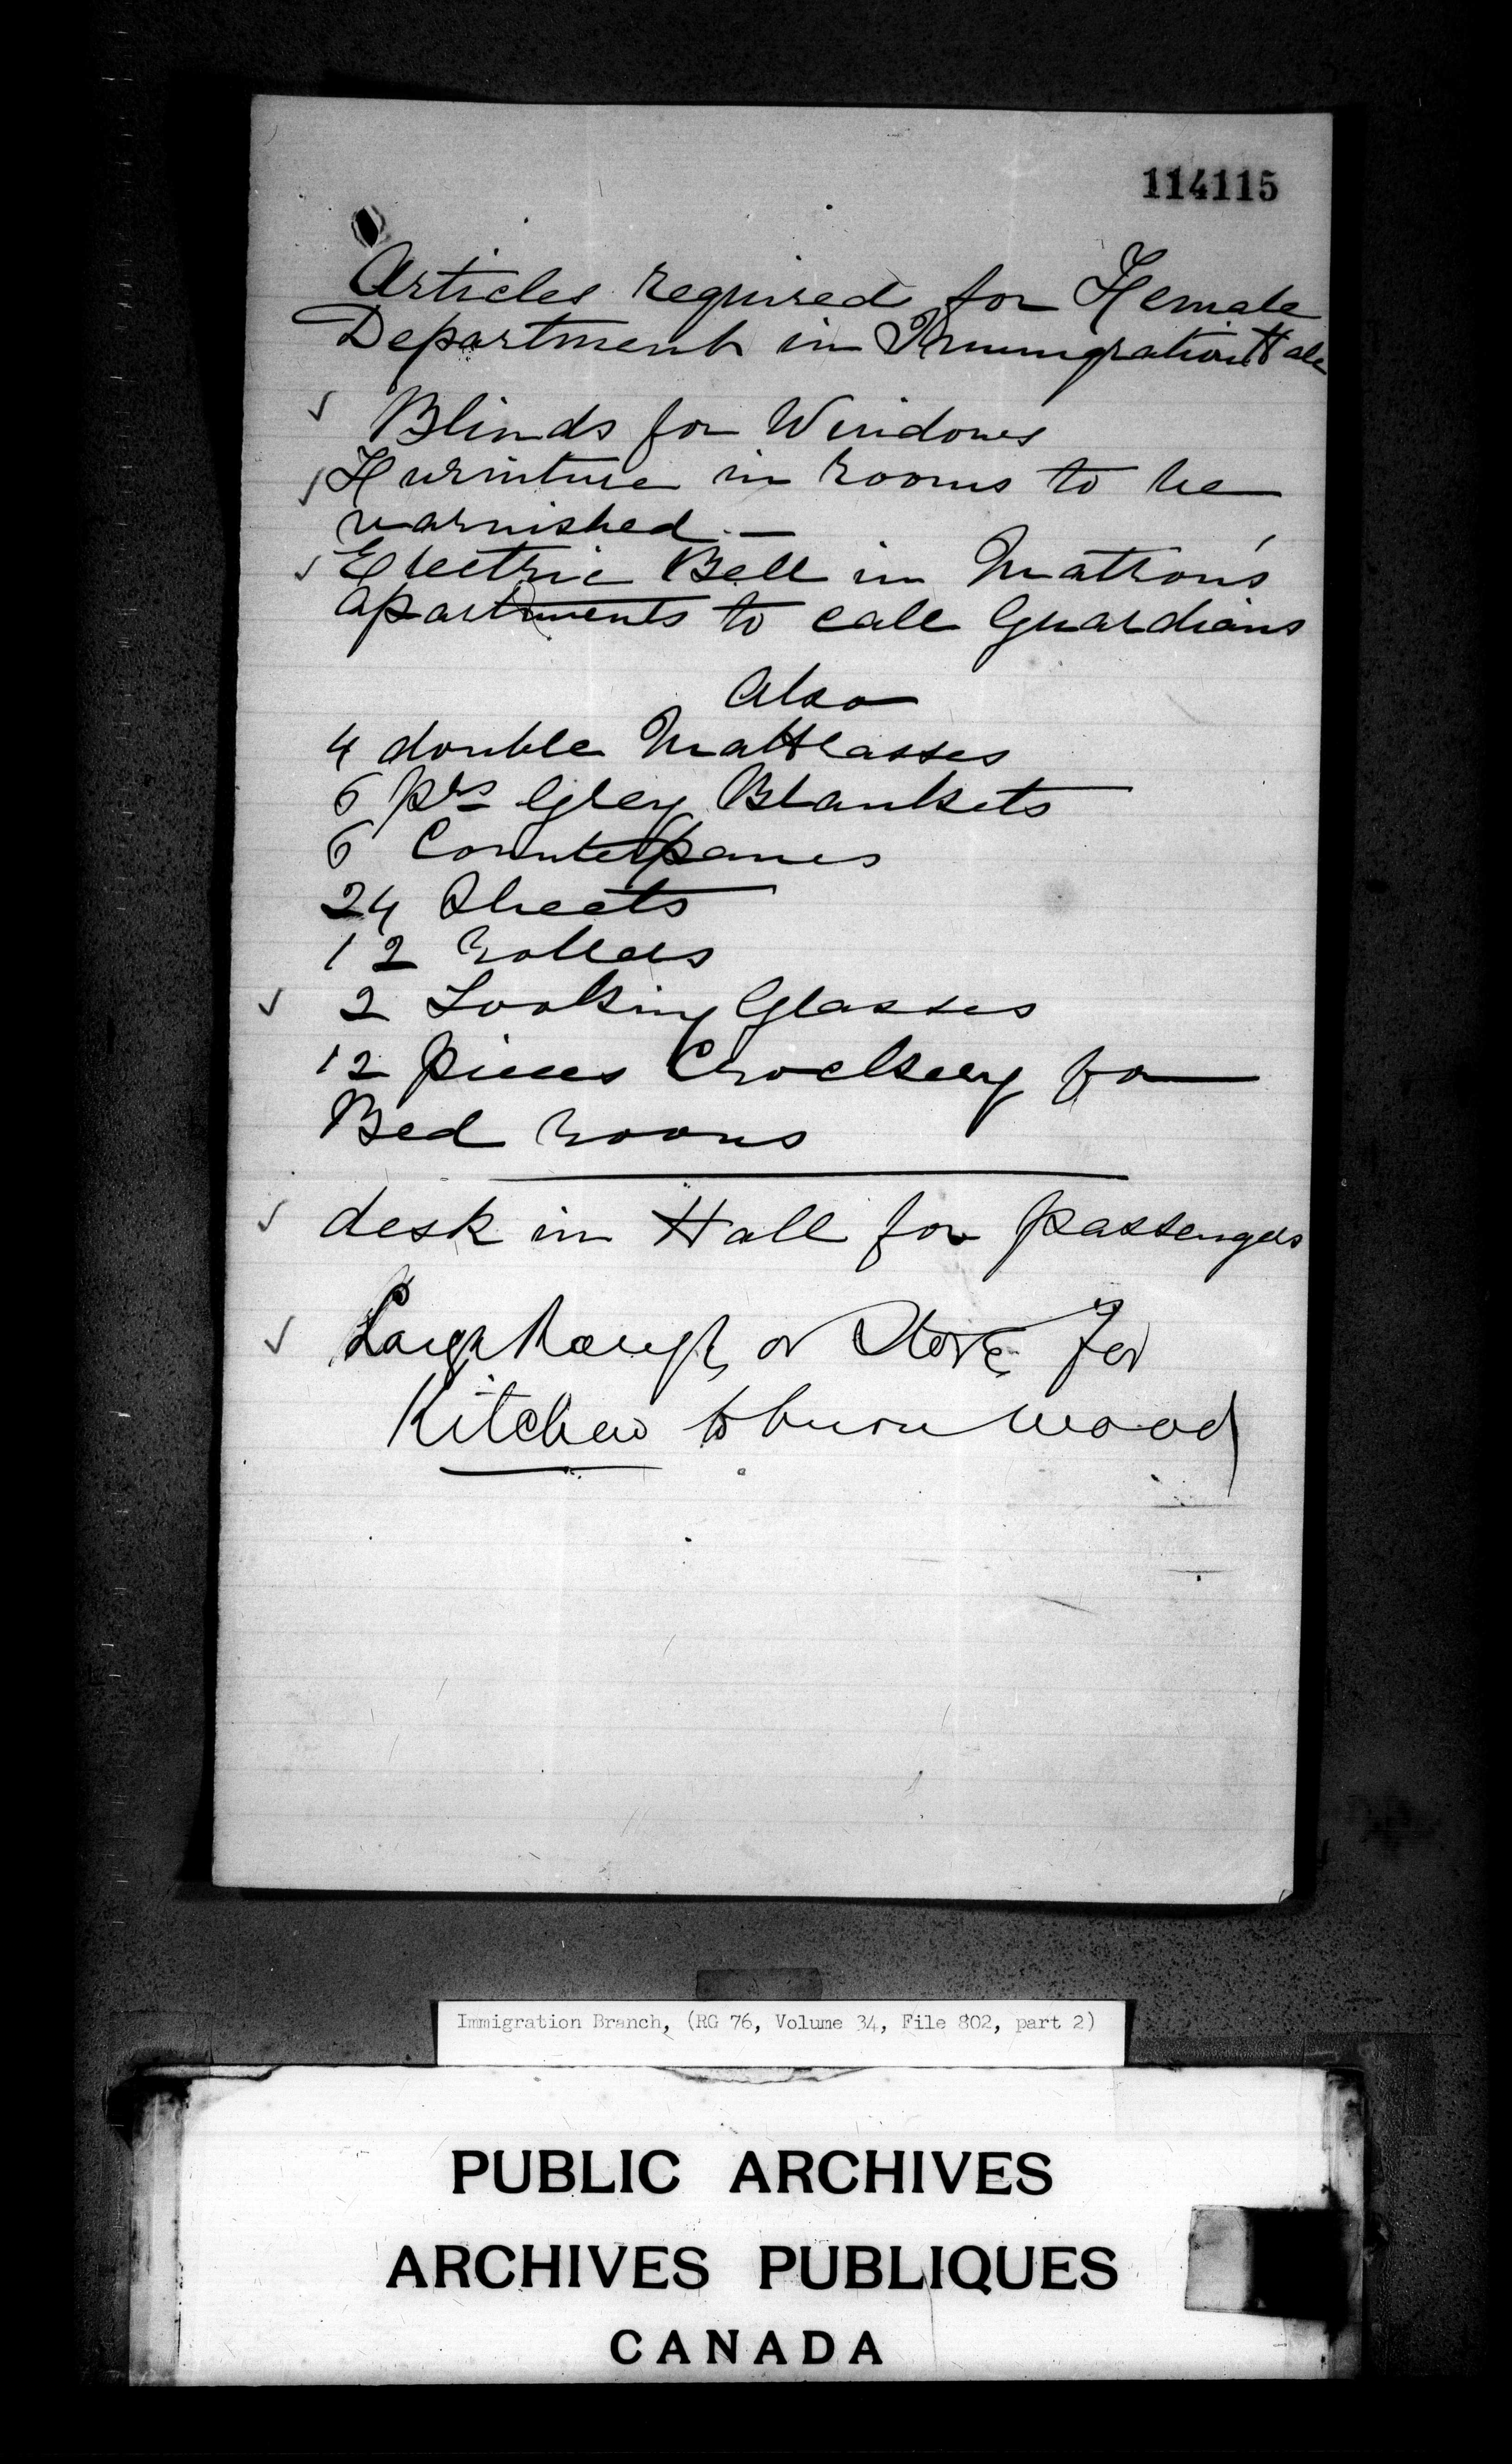 114115
Articles required for Female
Department in Immigration Hall
✓ Blinds for Windows
✓ Furniture in rooms to be
varnished —
✓ Electric Bell in Matron's
apartments to call Guardians
Also
4 double Mattrasses
6 prs Grey Blankets
6 Counterpanes
24 Sheets
12 rollers
✓ 2 Looking Glasses
12 pieces Crockery for
Bed rooms
✓ desk in Hall for passengers
✓ Large or Stove For
Kitchen to burn wood
Immigration Branch, (RG 76, Volume 34, File 802, part 2)
PUBLIC ARCHIVES
ARCHIVES PUBLIQUES
CANADA